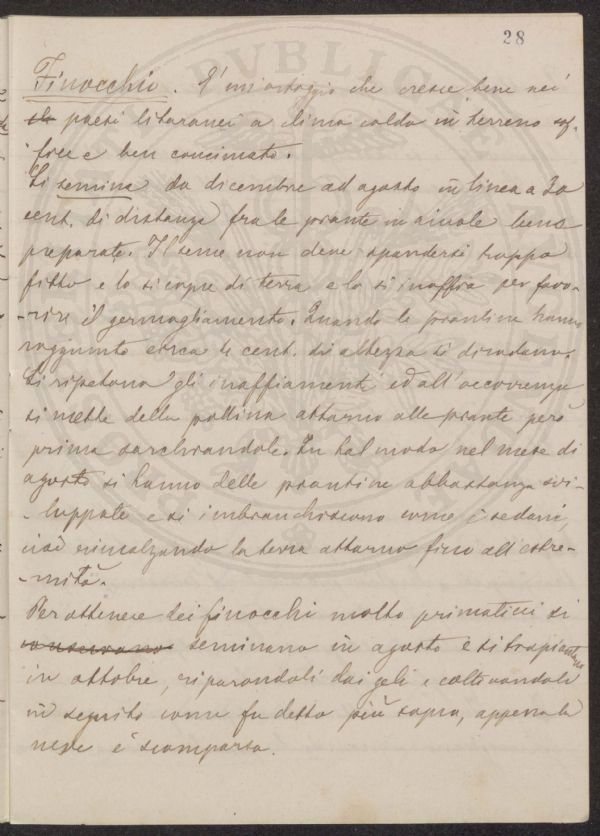 28
Finocchio. E' un'ortaggio che cresce bene nei
paesi litoranei a clima caldo in terreno sof-
fice e ben concimato.
Si semina da dicembre ad agosto in linea a 30
cent. di distanza fra le piante in aivole bene
preparate. Il seme non deve spandersi troppo
fitto e lo si copre di terra e lo si inaffia per favo-
-rire il germogliamento. Quando le piantine hanno
raggiunto circa 4 cent. di altezza si diradano.
Si ripetono gli inaffiamenti ed all'occorrenza
si mette della pollina attorno alle piante però
prima sarchiandole. In tal modo nel mese di
agosto si hanno delle piantine abbastanza svi-
-luppate e si imbianchiscono come i sedani,
cioè rincalzando la terra attorno fino all'estre-
-mità.
Per ottenere dei finocchi molto primaticci si
conservano seminano in agosto e si trapiantano
in ottobre, riparandoli dai geli e coltivandoli
in seguito come fu detto più sopra, appena la
neve è scomparsa.